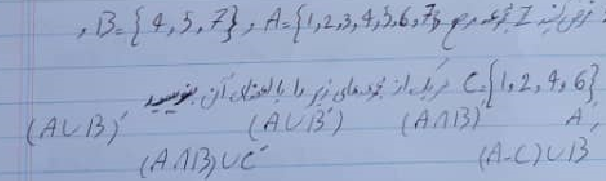 فرض کنید I مجموعه مرجع و A={1,2,3,4,5,6,7} , B={4,5,7} ,
C={1,2,4,6} هریک از مجموعه‌های زیر را با اعضای آن بنویسید
A' , (A∩B)' (A∪B') (A∪B)'
(A-C)∪B (A∩B)∪C'